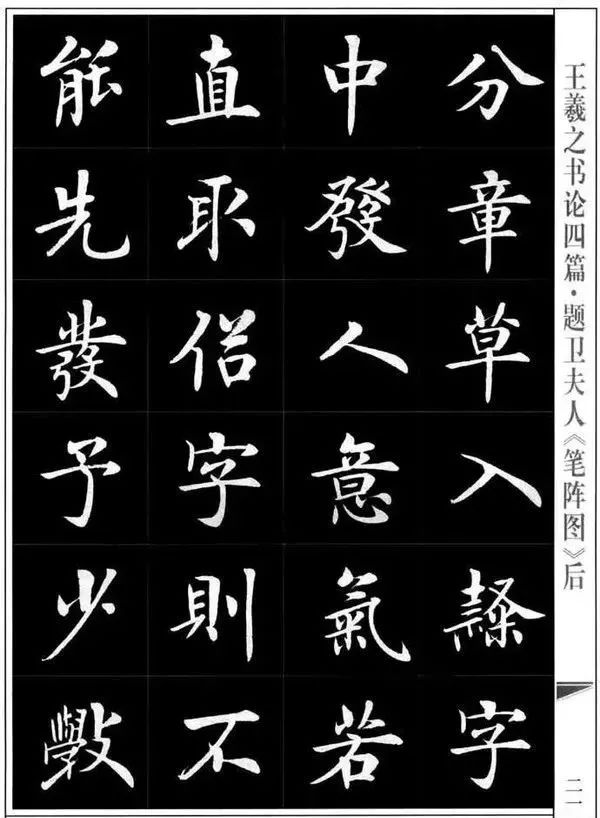 王羲之书论四篇·题卫夫人《笔阵图》后
二一
分章草入隸字
中發人意氣若
直取俗字則不
能先發予少斅